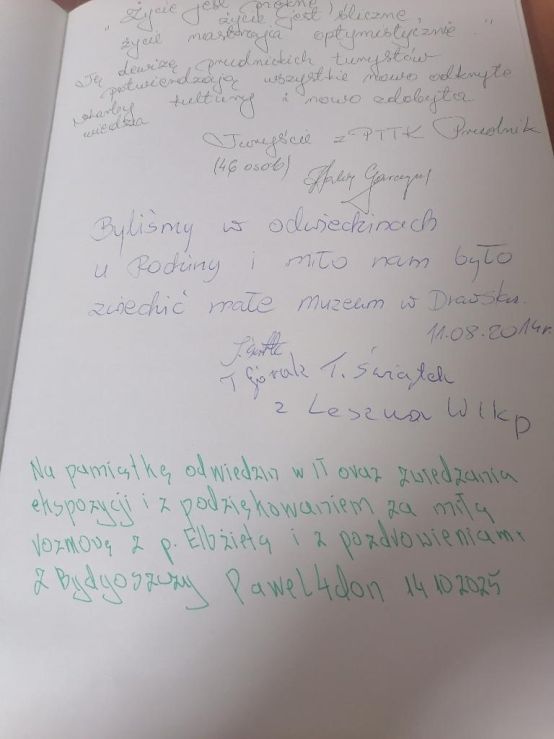 "Życie jest piękne,
życie jest śliczne,
życie nastraja optymistycznie."
Tę dewizę prudnickich turystów
potwierdzają wszystkie nowo odkryte
skarby kultury i nowo zdobyta
wiedza
Turyście z PTTK Prudnik
(46 osób)
Byliśmy w odwiedzinach
u Rodziny i miło nam było
zwiedzić małe muzeum w Drawsku.
11.08.2014r.
T. Świątek
z Leszna Wlkp
Na pamiątkę odwiedzin w IT oraz zwiedzania
ekspozycji i z podziękowaniem za miłą
rozmovę z p. Elbżietą i z pozdrowieniami
z Bydgoszczy Pawel4don 14 10 2025